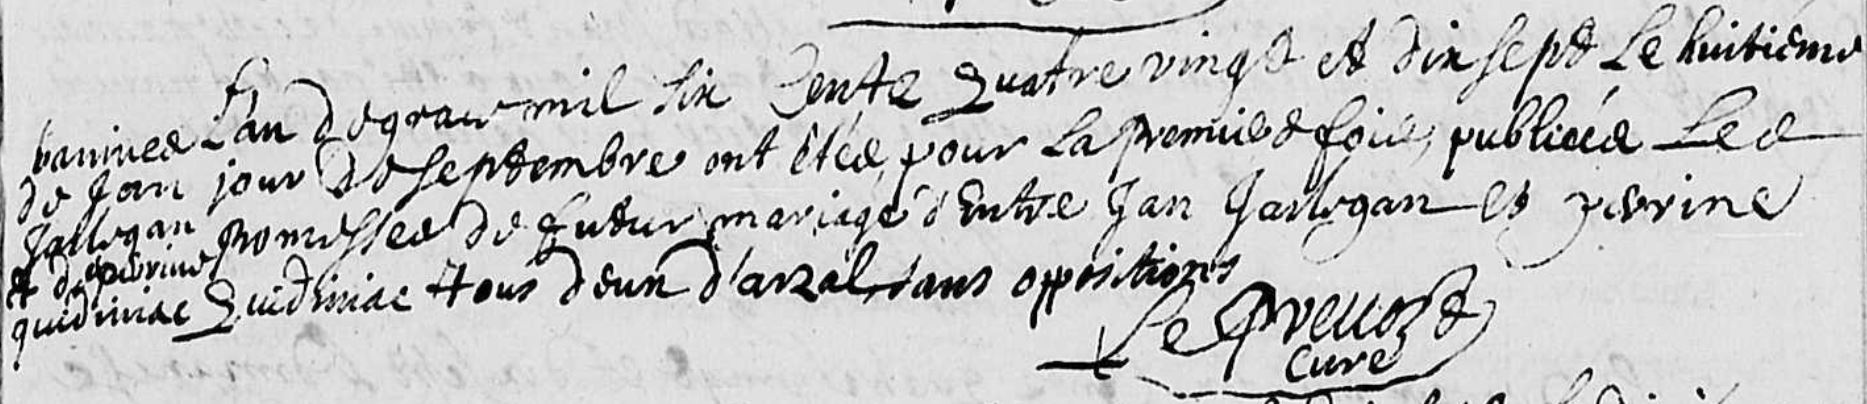 bannies
de Jan
Jallogan
et de perrine
quidiniac
L'an de grace mil six cents quatre vingt et dix sept le huitieme
jour de septembre ont étés pour la premiere fois publiées Les
promesses de futur mariage d'Entre Jan Jallogan et perrine
Quidiniac tous deux d'arzal sans oppositions
Le Prevost
Curé